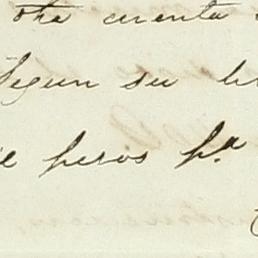 otra cuenta
Segun su
pesos p.ª